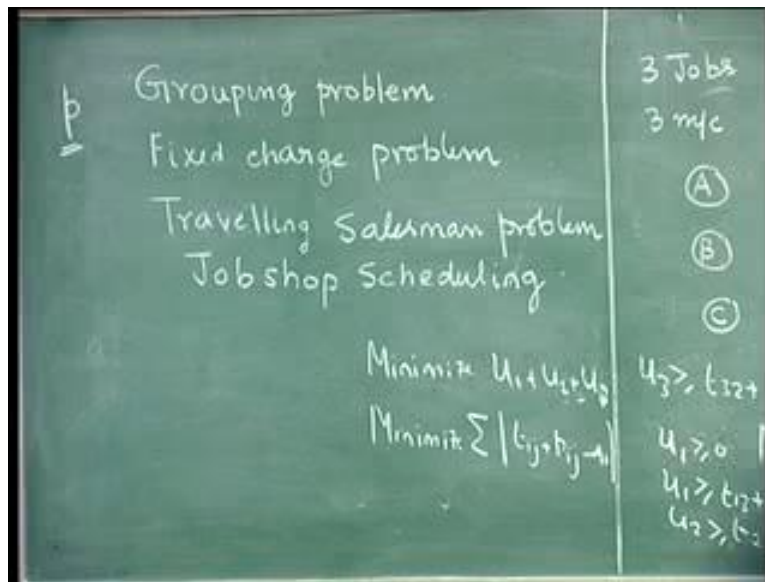 p
Grouping problem
Fixed charge problem
Travelling Salesman problem
Jobshop Scheduling
Minimize u₁+u₂+u₃
Minimize Σ|tᵢⱼ+pᵢⱼ-
3 Jobs
3 m/c
A
B
C
u₃≥ t₃₂+
u₁≥0
u₁≥ t₁₂+
u₂≥